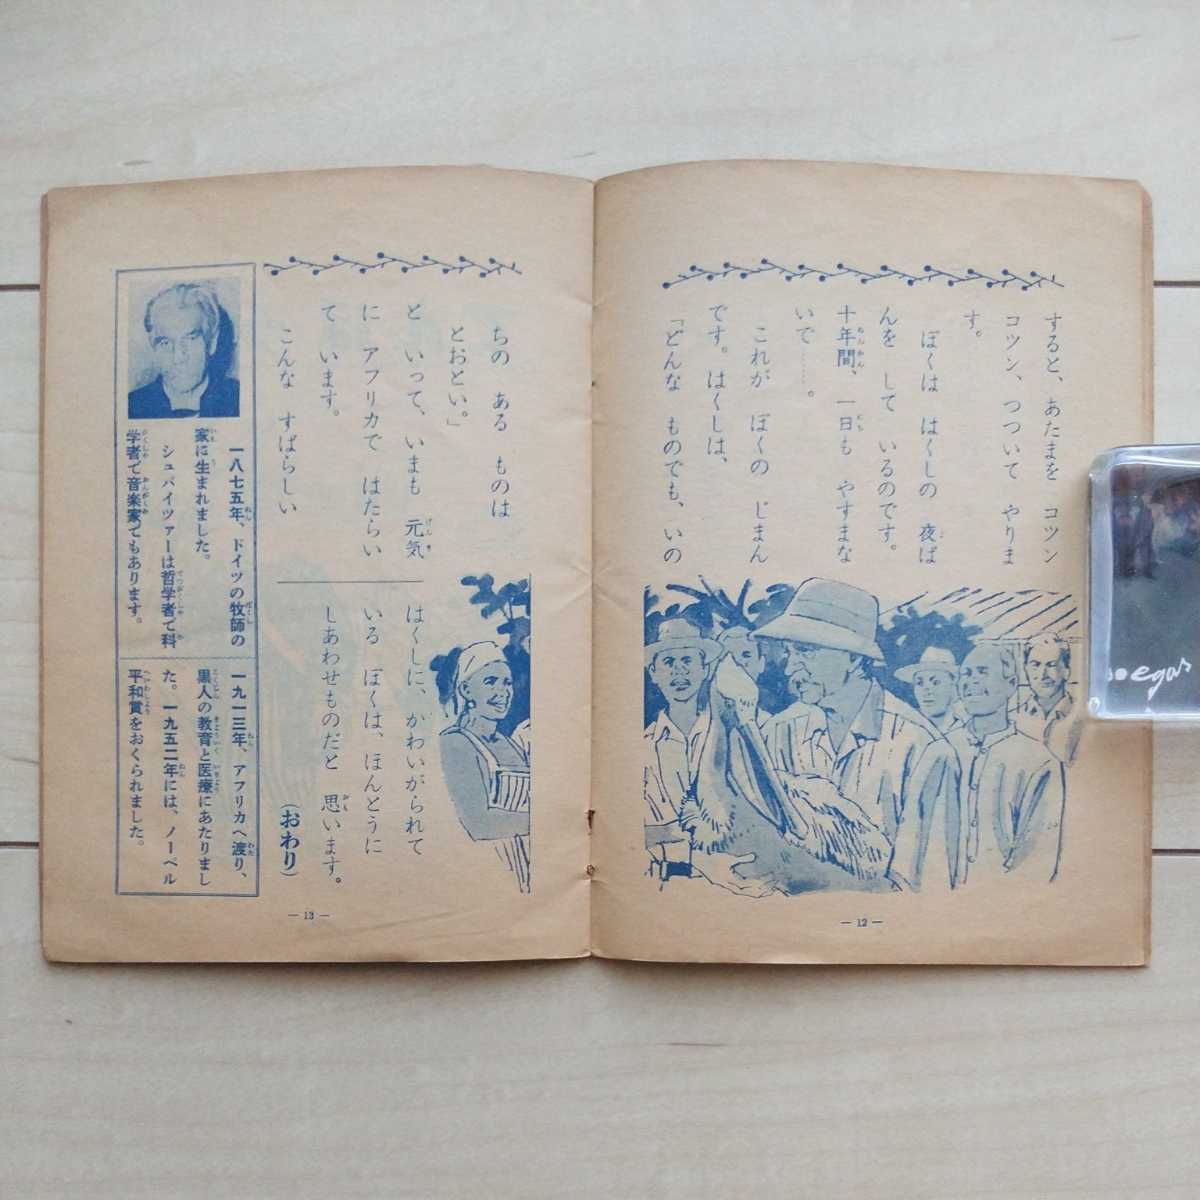 すると、あたまを コツン
コツン、つついて やりま
す。
ぼくは はくしの 夜ば
んを して いるのです。
十年間、一日も やすまな
いで……。
これが ぼくの じまん
です。はくしは、
「どんな ものでも、いの
— 12 —
ちの ある ものは
とおとい。」
と いって、いまも 元気
に アフリカで はたらい
て います。
こんな すばらしい
はくしに、かわいがられて
いる ぼくは、ほんとうに
しあわせものだと 思います。
(おわり)
一八七五年、ドイツの牧師の
家に生まれました。
シュバイツァーは哲学者で科
学者で音楽家でもあります。
一九一三年、アフリカへ渡り、
黒人の教育と医療にあたりまし
た。一九五二年には、ノーベル
平和賞をおくられました。
— 13 —
egas